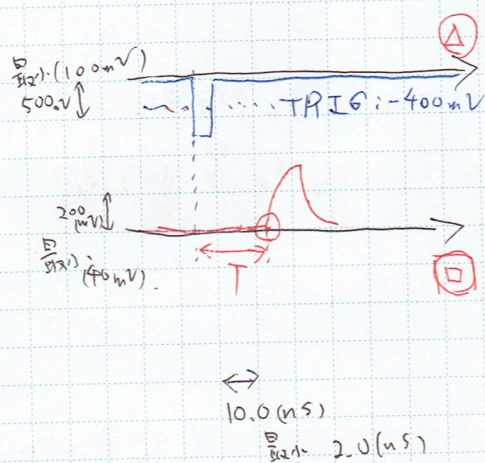 △
最小(100mV)
500mV
TRIG:-400mV
200
(mV)
最小
(40mV).
T
□
10.0(ns)
最小 2.0(ns)